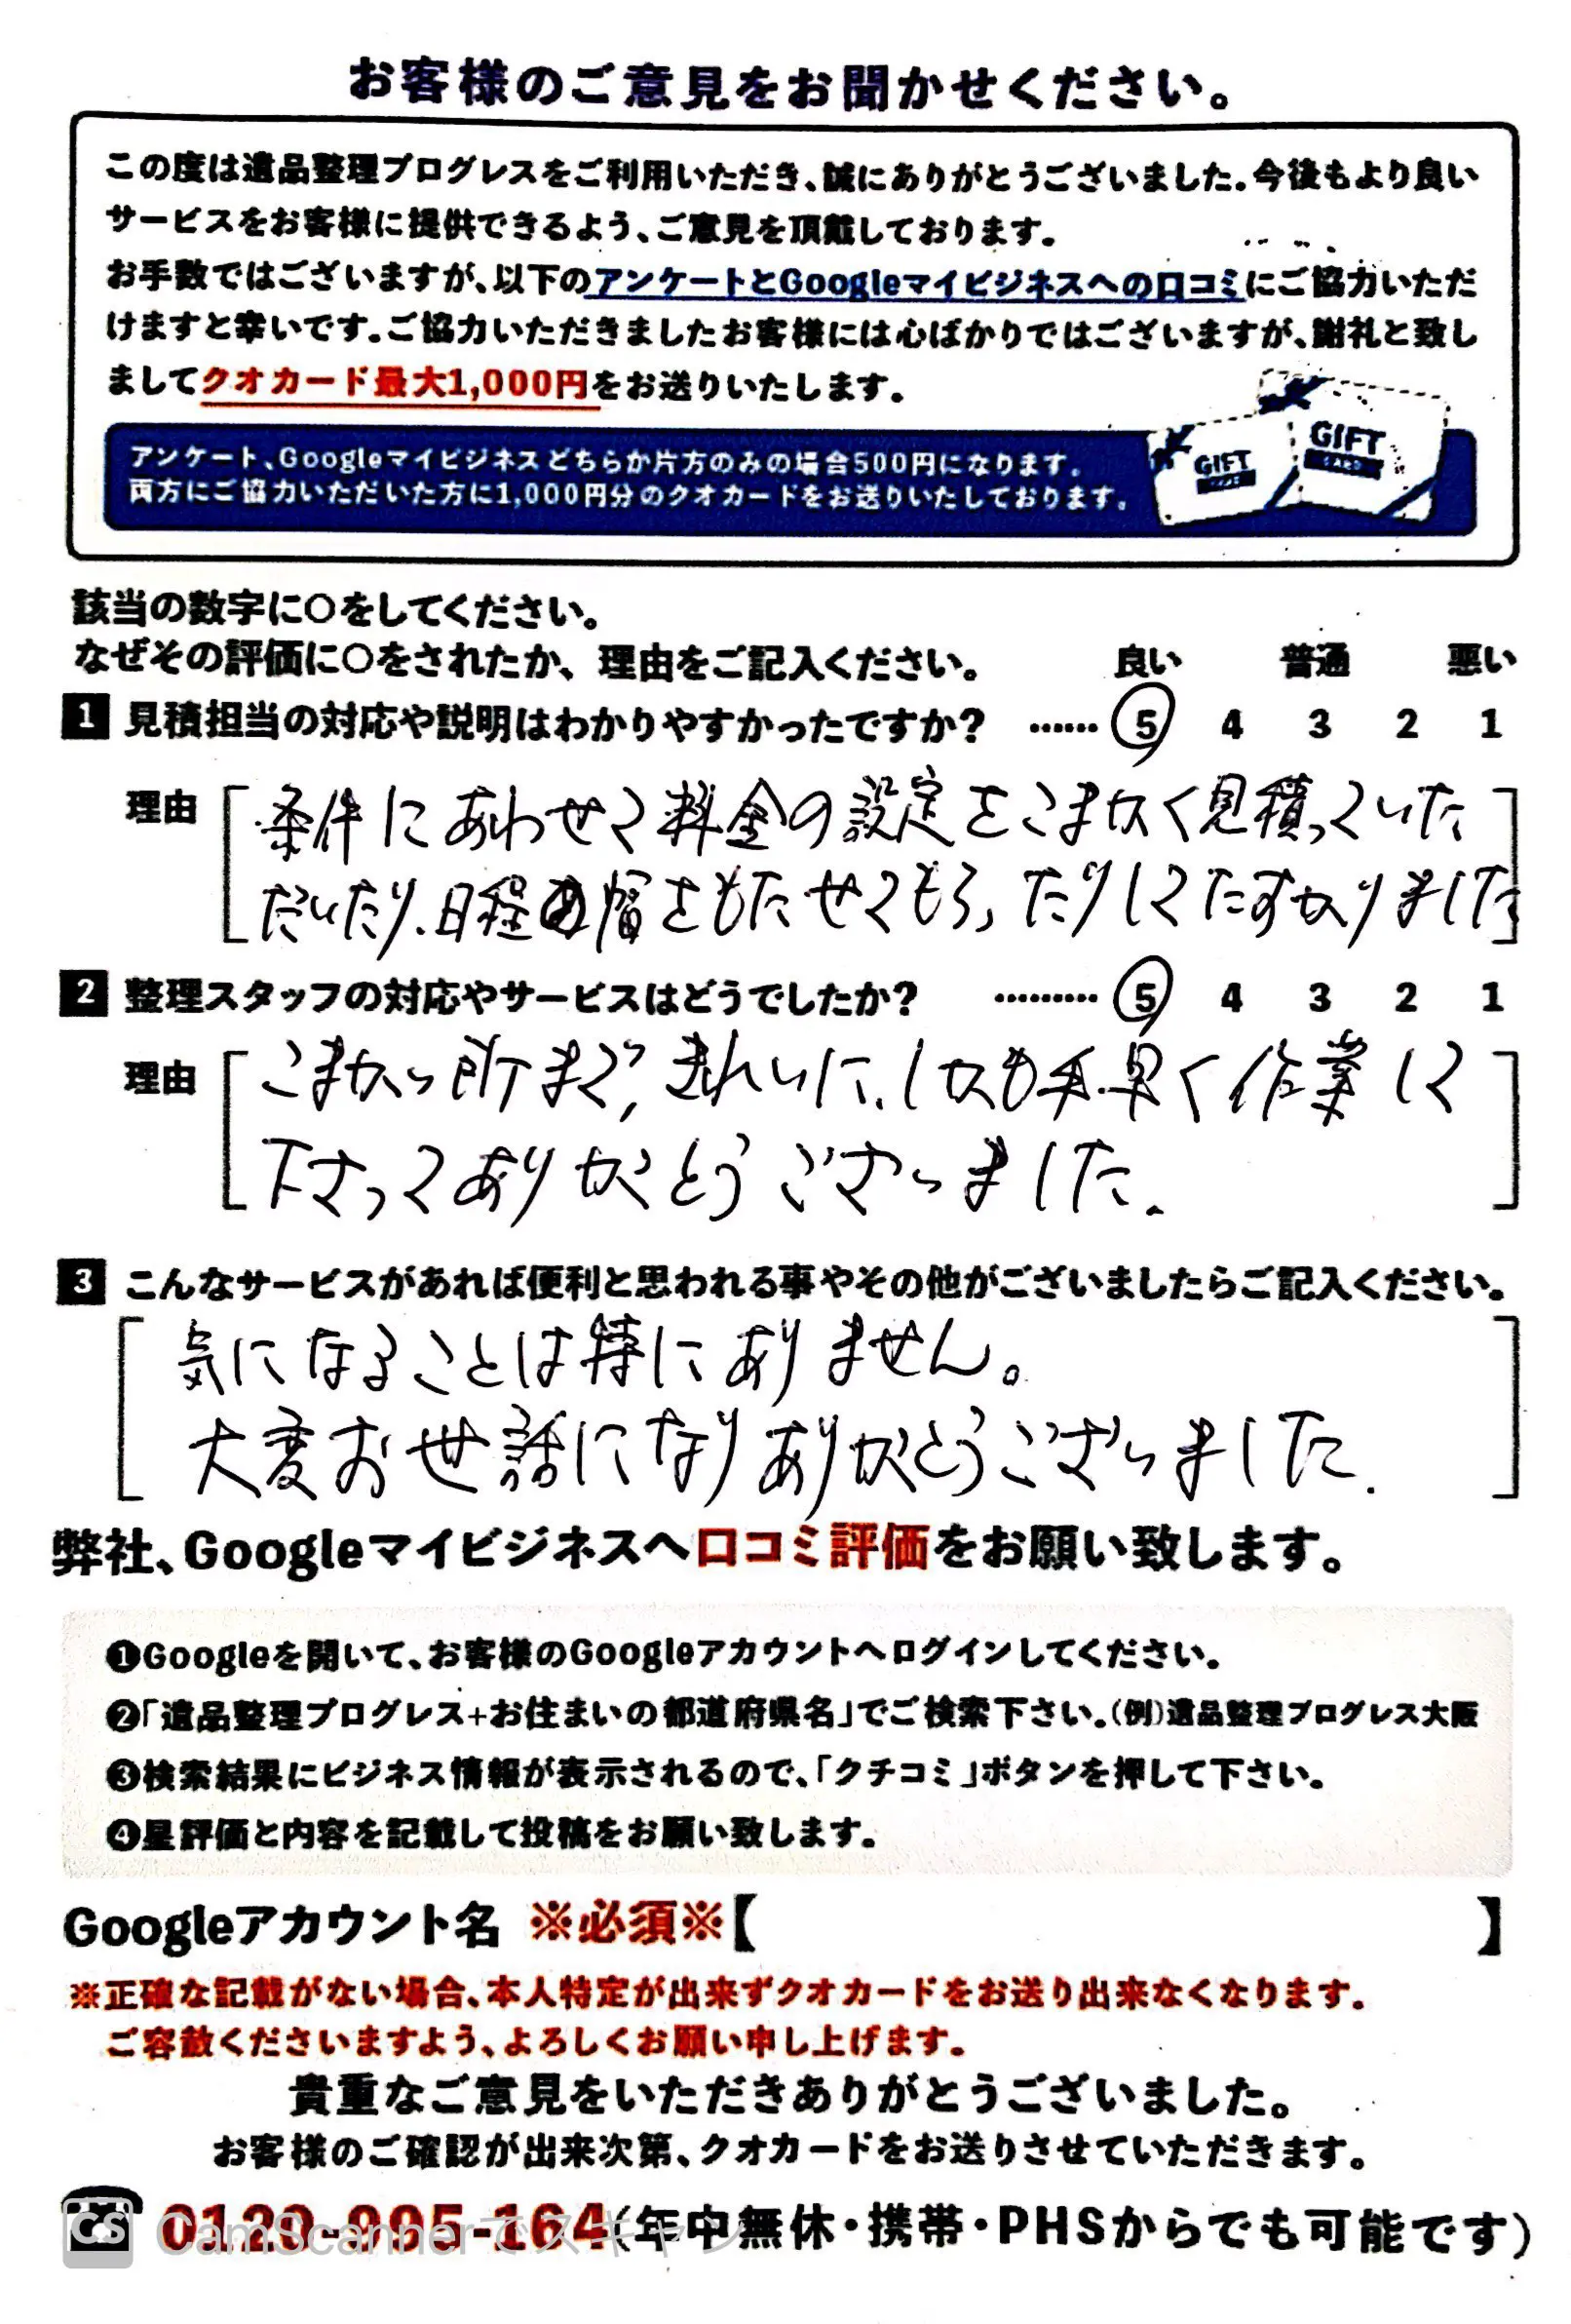 お客様のご意見をお聞かせください。
この度は遺品整理プログレスをご利用いただき、誠にありがとうございました。今後もより良い
サービスをお客様に提供できるよう、ご意見を頂戴しております。
お手数ではございますが、以下のアンケートとGoogleマイビジネスへの口コミにご協力いただ
けますと幸いです。ご協力いただきましたお客様には心ばかりではございますが、謝礼と致し
ましてクオカード最大1,000円をお送りいたします。
アンケート、Googleマイビジネスどちらか片方のみの場合500円になります。
両方にご協力いただいた方に1,000円分のクオカードをお送りいたしております。
GIFT
GIFT
CARD
該当の数字に○をしてください。
なぜその評価に○をされたか、理由をご記入ください。 良い 普通 悪い
1 見積担当の対応や説明はわかりやすかったですか? …… 5 4 3 2 1
理由 条件にあわせて料金の設定をこまかく見積っていた
だいたり、日程の幅をもたせてもらったりしてたすかりました
2 整理スタッフの対応やサービスはどうでしたか? ……… 5 4 3 2 1
理由 こまかい所まで、きれいに、しかも手早く作業して
下さってありがとうございました.
3 こんなサービスがあれば便利と思われる事やその他がございましたらご記入ください。
気になることは特にありません。
大変お世話になりありがとうございました.
弊社、Googleマイビジネスへ口コミ評価をお願い致します。
❶Googleを開いて、お客様のGoogleアカウントへログインしてください。
❷「遺品整理プログレス+お住まいの都道府県名」でご検索下さい。(例)遺品整理プログレス大阪
❸検索結果にビジネス情報が表示されるので、「クチコミ」ボタンを押して下さい。
❹星評価と内容を記載して投稿をお願い致します。
Googleアカウント名 ※必須※【 】
※正確な記載がない場合、本人特定が出来ずクオカードをお送り出来なくなります。
ご容赦くださいますよう、よろしくお願い申し上げます。
貴重なご意見をいただきありがとうございました。
お客様のご確認が出来次第、クオカードをお送りさせていただきます。
0120-995-164(年中無休・携帯・PHSからでも可能です)
CS CamScannerでスキャン